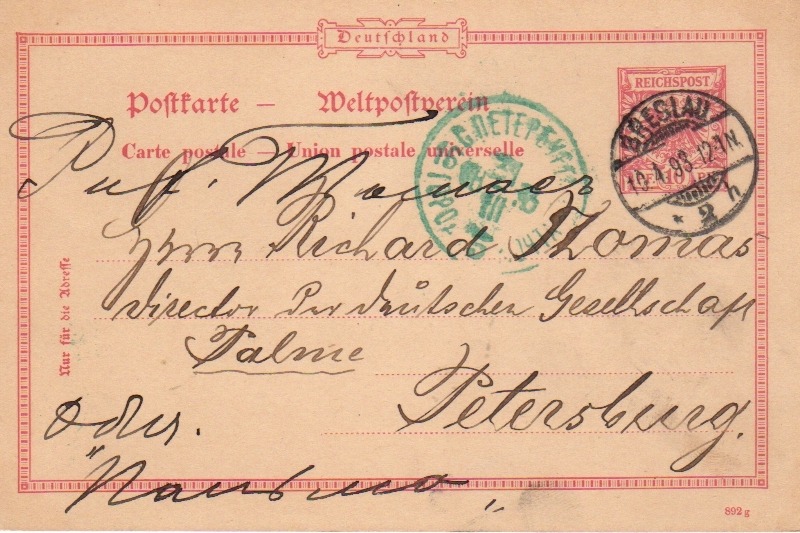 Deutschland
Postkarte — Weltpostverein
Carte postale — Union postale universelle
REICHSPOST
BRESLAU
10.4.93.12-1N.
* 2 h
С.ПЕТЕРБУРГ
Herrn Richard Thomas
Director der deutschen Gesellschaft
Palme
Petersburg.
oder.
Nur für die Adresse
892 g